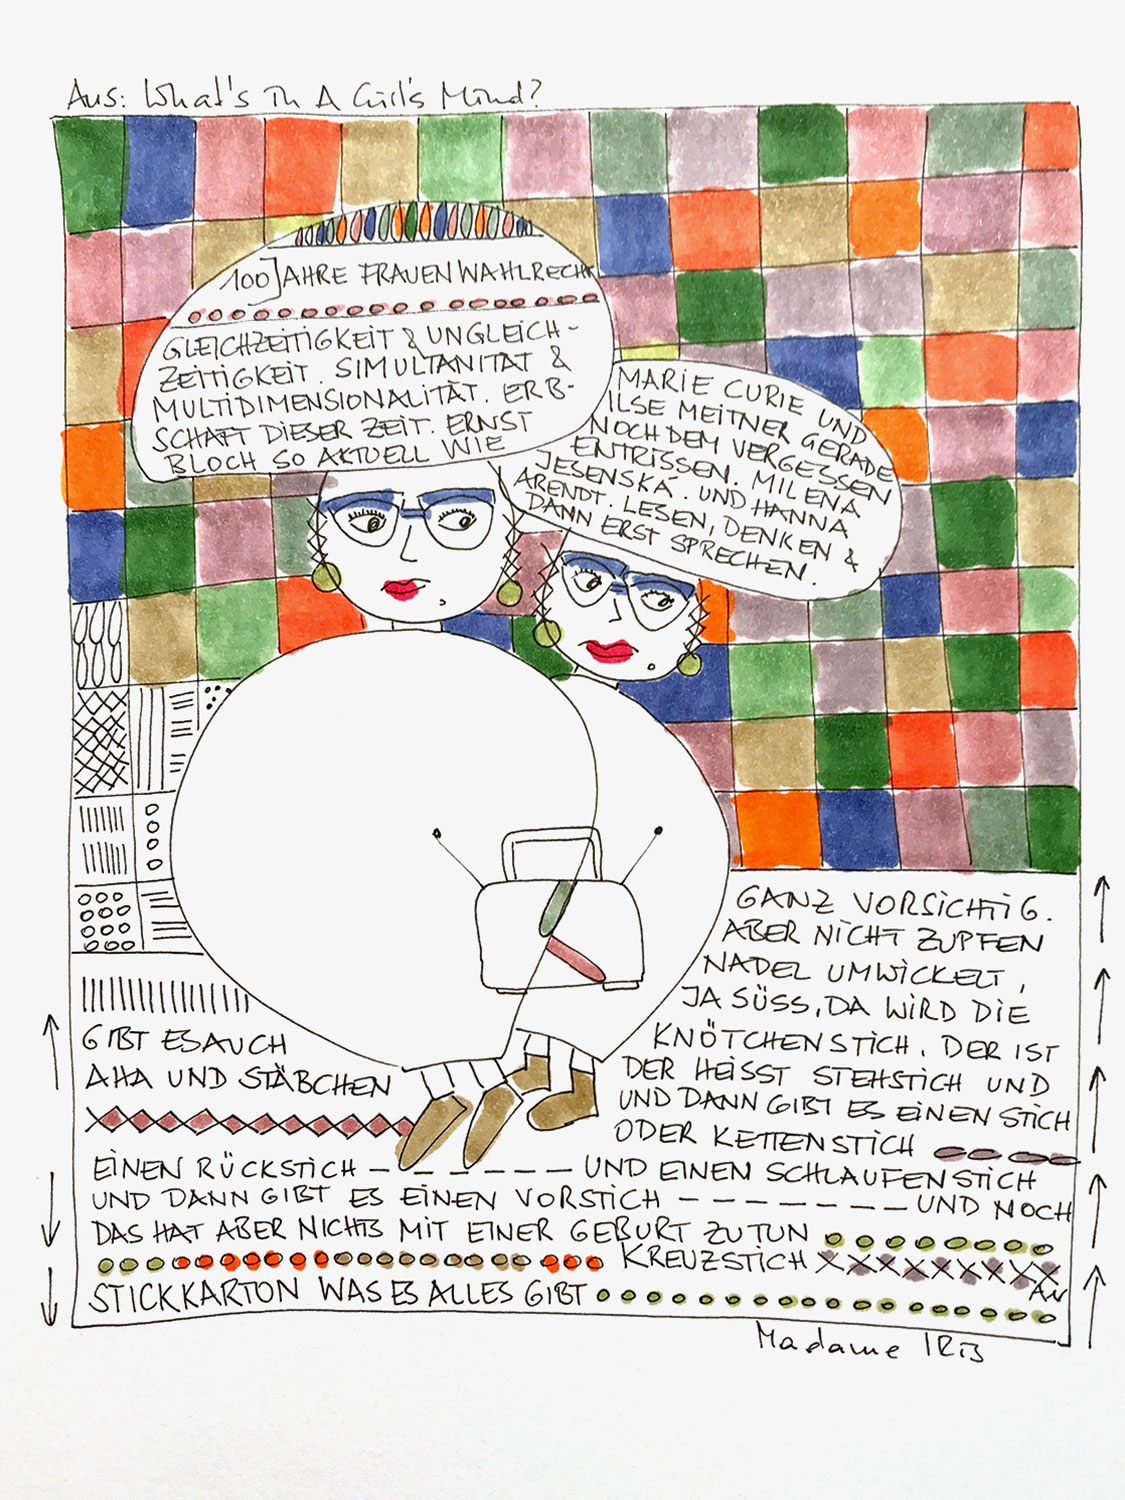 Aus: What's in A Girl's Mind?
100 JAHRE FRAUENWAHLRECHT
GLEICHZEITIGKEIT & UNGLEICH-
ZEITIGKEIT. SIMULTANITÄT &
MULTIDIMENSIONALITÄT. ERB-
SCHAFT DIESER ZEIT. ERNST
BLOCH SO AKTUELL WIE
MARIE CURIE UND
ILSE MEITNER GERADE
NOCH DEM VERGESSEN
ENTRISSEN. MILENA
JESENSKÁ. UND HANNA
ARENDT. LESEN, DENKEN &
DANN ERST SPRECHEN.
GANZ VORSICHTIG.
ABER NICHT ZUPFEN
NADEL UMWICKELT,
JA SÜSS, DA WIRD DIE
KNÖTCHENSTICH. DER IST
DER HEISST STEHSTICH UND
UND DANN GIBT ES EINEN STICH
ODER KETTENSTICH
GIBT ES AUCH
AHA UND STÄBCHEN
EINEN RÜCKSTICH – – – – – – – UND EINEN SCHLAUFENSTICH
UND DANN GIBT ES EINEN VORSTICH – – – – – – – UND NOCH
DAS HAT ABER NICHTS MIT EINER GEBURT ZU TUN
KREUZSTICH XXXXXXXXX
AN
STICKKARTON WAS ES ALLES GIBT
Madame IRIS